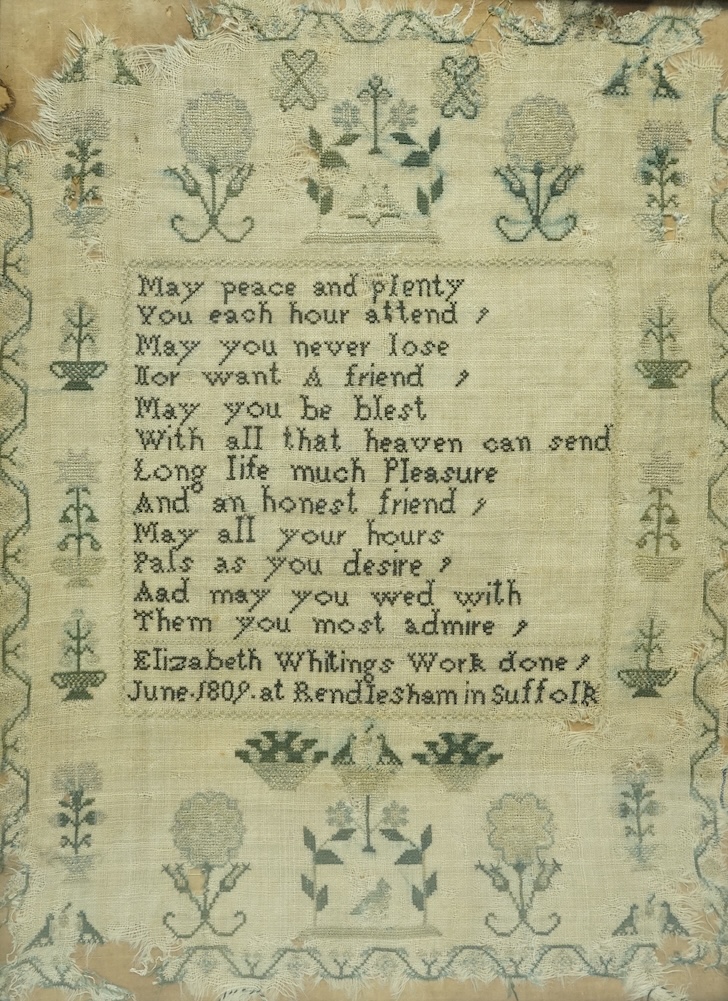 May peace and plenty
You each hour attend ,
May you never lose
Nor want A friend ,
May you be blest
With all that heaven can send
Long life much Pleasure
And an honest friend ,
May all your hours
Pals as you desire ,
Aad may you wed with
Them you most admire ,
Elizabeth Whitings Work done ,
June.1809. at Rendlesham in Suffolk